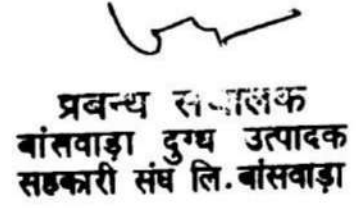 प्रबन्ध संचालक
बांसवाड़ा दुग्ध उत्पादक
सहकारी संघ लि. बांसवाड़ा